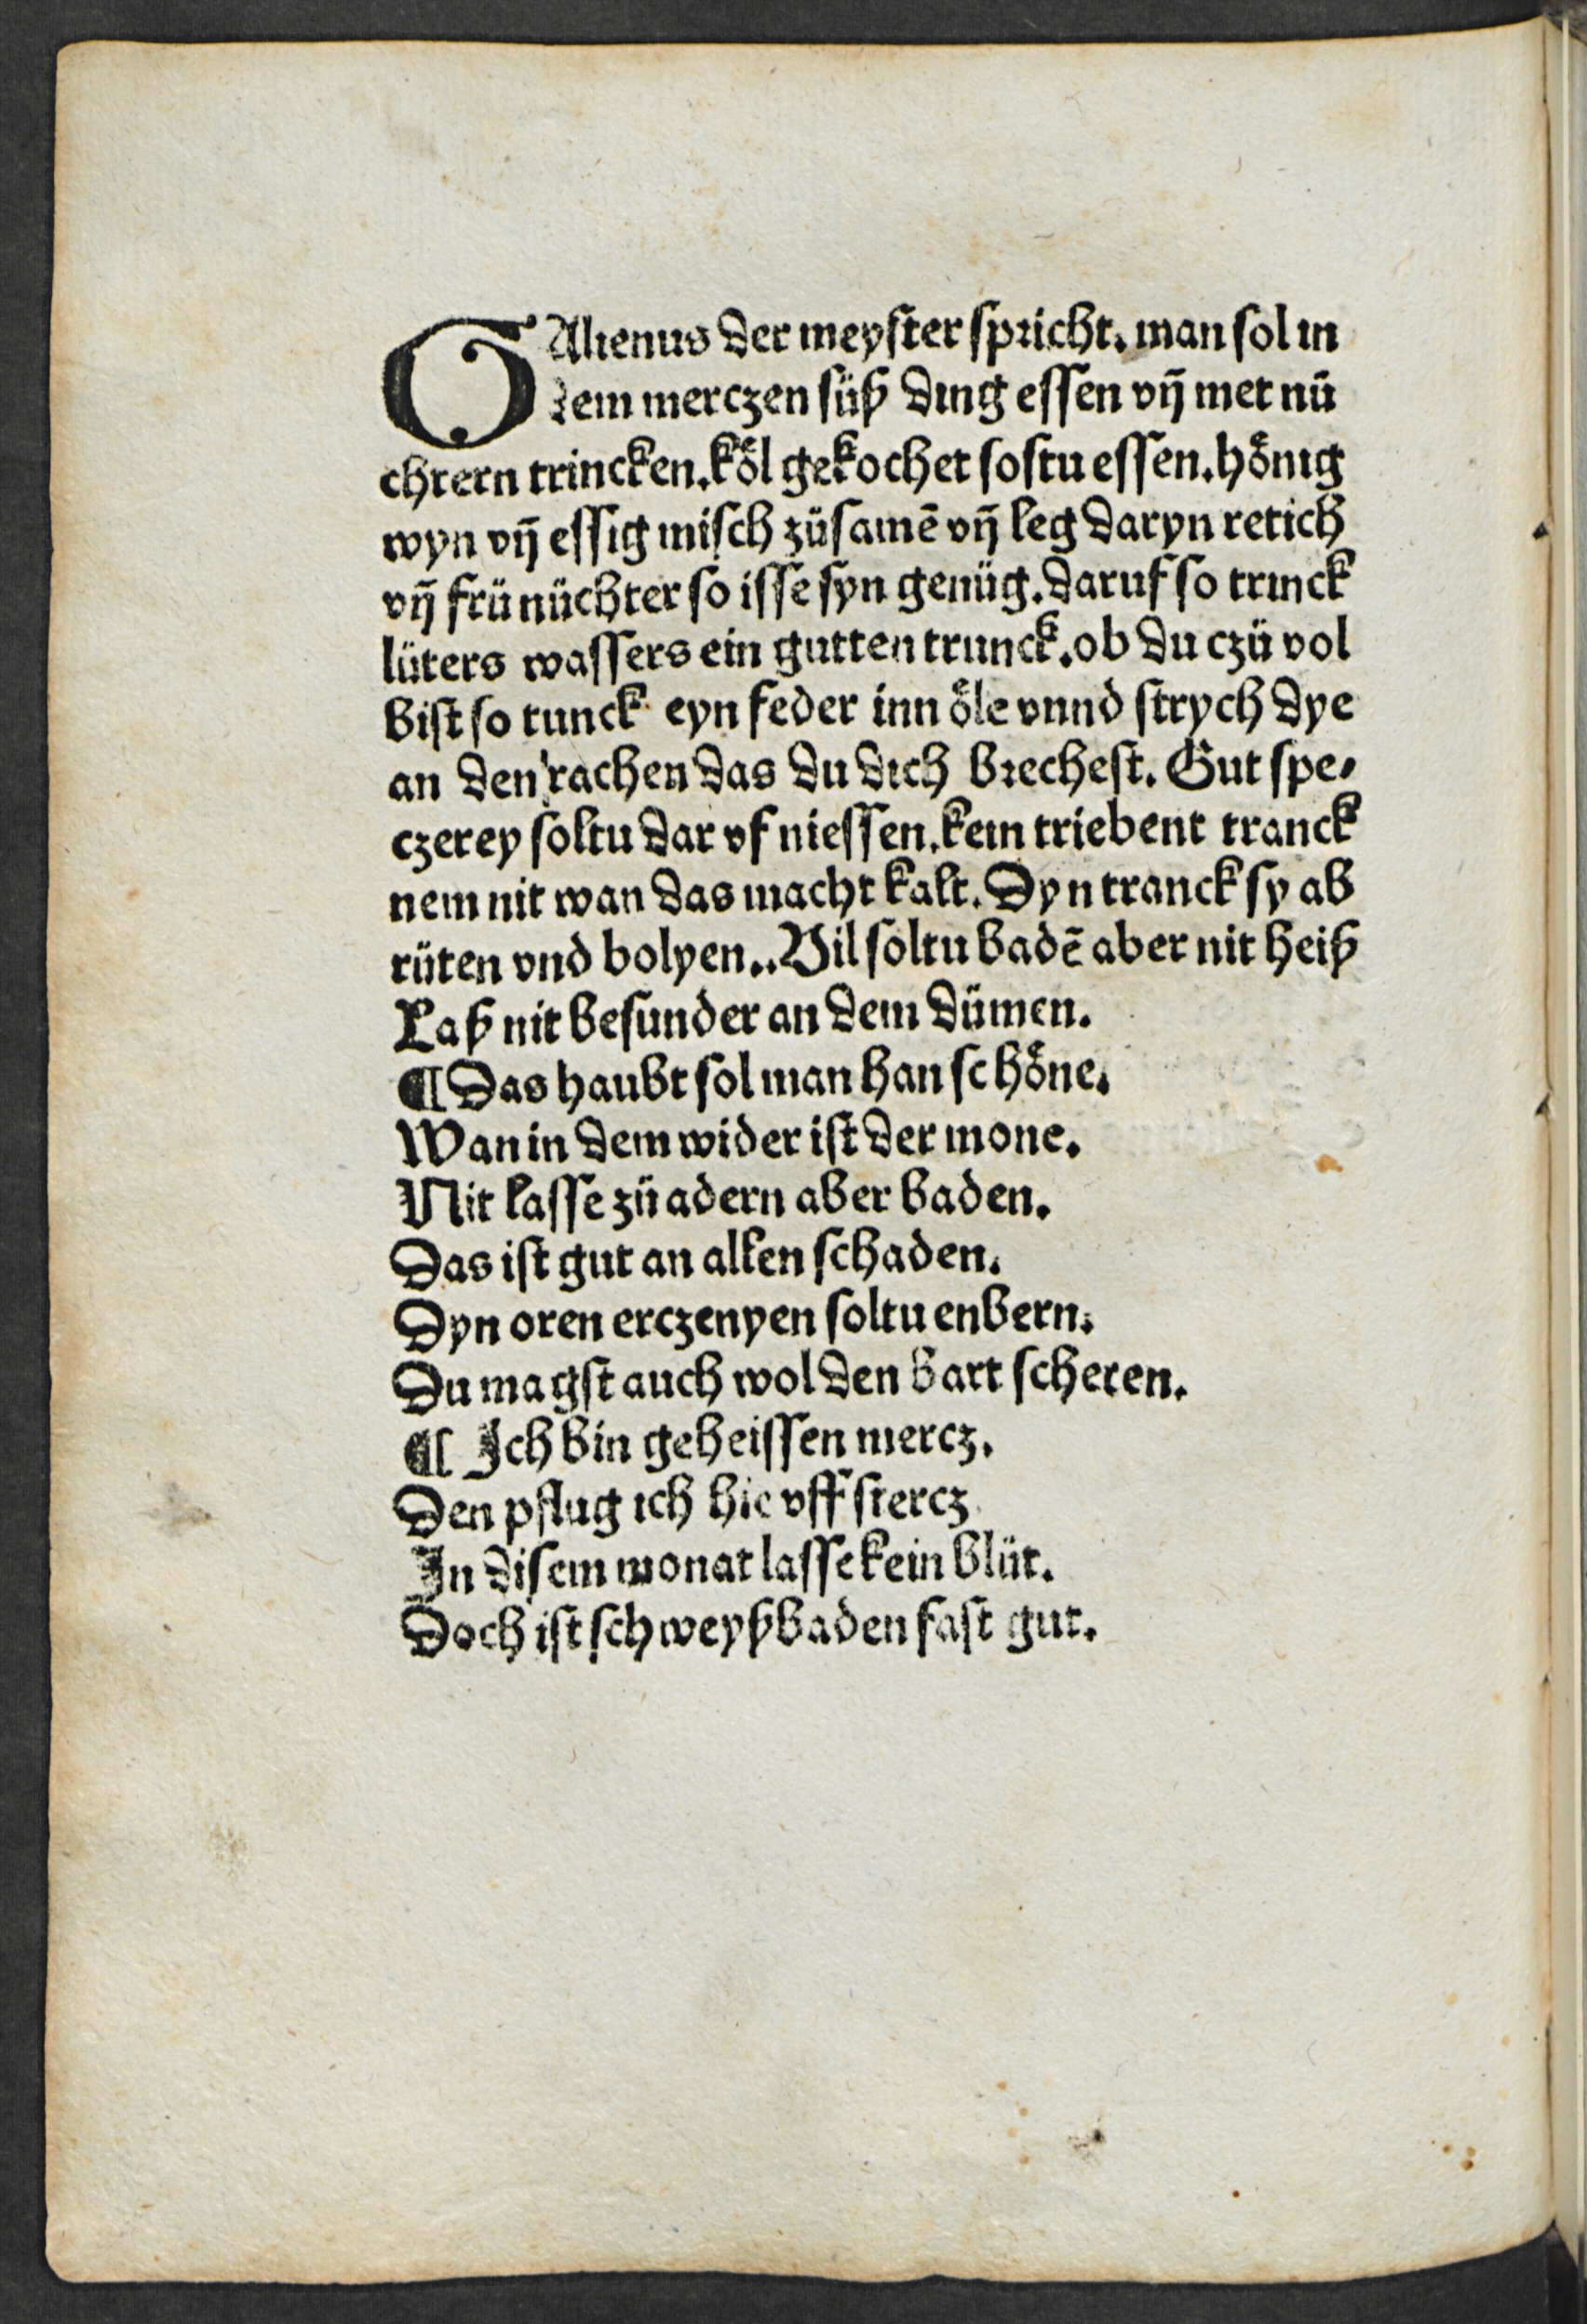 GAlienus der meyster spricht. man sol in
dem merczen süß ding essen vn̄ met nü
chtern trincken. köl gekochet soltu essen. hönig
wyn vn̄ essig misch züsamē vn̄ leg daryn retich
vn̄ frü nüchter so isse syn genüg. daruf so trinck
lüters wassers ein gutten trunck. ob du czü vol
bist so tunck eyn feder inn öle vnnd strych dye
an den rachen das du dich brechest. Gut spe⸗
czerey soltu dar vf niessen. kein triebent tranck
nem nit wan das macht kalt. Dyn tranck sy ab
rüten vnd bolyen.. Vil soltu badē aber nit heiß
Laß nit besunder an dem dümen.
¶ Das haubt sol man han schöne.
Wan in dem wider ist der mone.
Nit lasse zü adern aber baden.
Das ist gut an allen schaden.
Dyn oren erczenyen soltu enbern.
Du magst auch wol den bart scheren.
¶ Ich bin geheissen mercz.
Den pflug ich hie vff stercz
In disem monat lasse kein blüt.
Doch ist schweyßbaden fast gut.